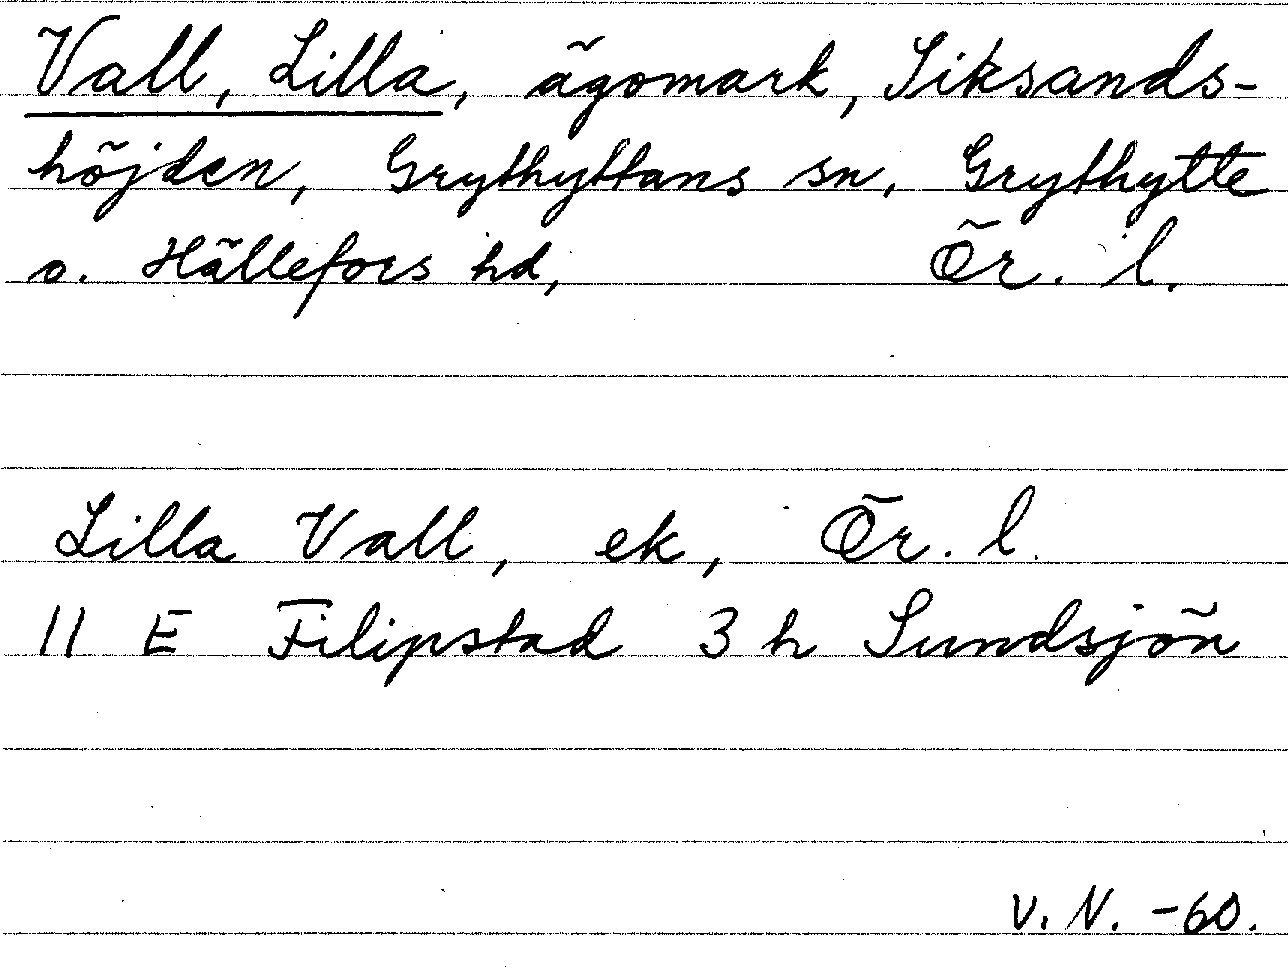 Vall, Lilla, ägomark, Siksands-
höjden, Grythyttans sn, Grythytte
o. Hällefors hd, Ör. l.
Lilla Vall, ek, Ör. l.
11 E Filipstad 3 h Sundsjön
V. N. -60.